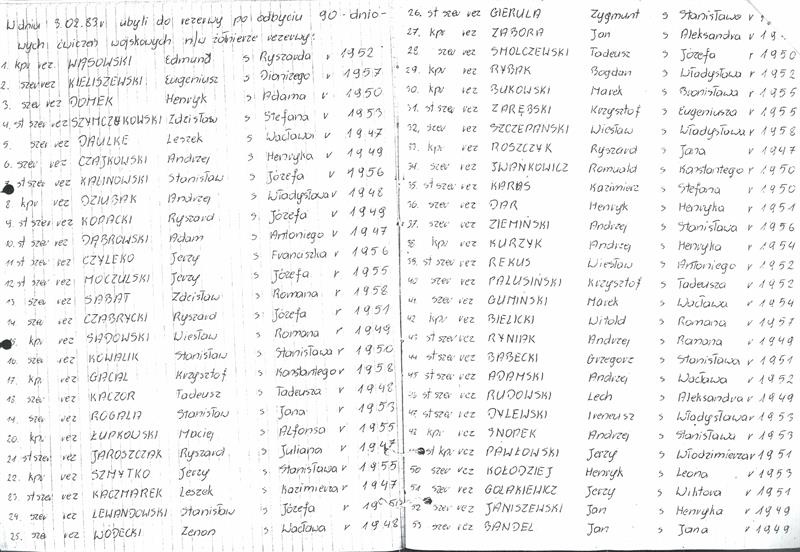 W dniu 3.02.83r ubyli do rezerwy po odbyciu 90-dnio-
wych ćwiczeń wojskowych n/w żołnierze rezerwy:
1. kpr rez WĄSOWSKI Edmund s Ryszarda r 1952
2. szer rez KIELISZEWSKI Eugeniusz s Dionizego r 1957
3. szer rez DOMEK Henryk s Adama r 1950
4. st szer rez SZYMCZYKOWSKI Zdzisław s Stefana r 1953
5. szer rez DAULKE Leszek s Wacława r 1947
6. szer rez CZAJKOWSKI Andrzej s Henryka r 1949
st szer rez KALINOWSKI Stanisław s Józefa r 1956
8 kpr rez DZIUBAK Andrzej s Władysława r 1948
9 st szer rez KOPACKI Ryszard s Józefa r 1949
10. st szer rez DĄBROWSKI Adam s Antoniego r 1947
11 st szer rez CZYLEKO Jerzy s Franciszka r 1956
12 st szer rez MOCZULSKI Jerzy s Józefa r 1955
13 szer rez SABAT Zdzisław s Romana r 1958
14. szer rez CZABRYCKI Ryszard s Józefa r 1951
kpr rez SADOWSKI Wiesław s Romana r 1949
16. szer rez KOWALIK Stanisław s Stanisława r 1950
17. kpr rez GACIAL Krzysztof s Konstantego r 1958
18 szer rez KACZOR Tadeusz s Tadeusza r 1948
19. szer rez ROGALIA Stanisław s Jana r 1953
20. kpr rez ŁUPKOWSKI Maciej s Alfonsa r 1955
21 st szer rez JAROSZCZAK Ryszard s Juliana r 1947
22. kpr rez SZMYTKO Jerzy s Stanisława r 1955
23. st szer rez KACZMAREK Leszek s Kazimierza r 1947
24. szer rez LEWANDOWSKI Stanisław s Józefa r
25. szer rez WÓDECKI Zenon s Wacława r 1948
26. st szer rez GIERULA Zygmunt s Stanisława r
27. kpr rez ZABORA Jan s Aleksandra r 19
28 szer rez SMOLCZEWSKI Tadeusz s Józefa r 1950
29. kpr rez RYBAK Bogdan s Władysława r 1952
30. kpr rez BUKOWSKI Marek s Bronisława r 1955
31. st szer rez ZARĘBSKI Krzysztof s Eugeniusza r 1955
32, szer rez SZCZEPAŃSKI Wiesław s Władysława r 1958
33. kpr rez ROSZCZYK Ryszard s Jana r 1947
34. szer rez IWAŃKOWICZ Romuald s Konstantego r 1950
35. st szer rez KARAŚ Kazimierz s Stefana r 1950
36. szer rez DAR Henryk s Henryka r 1951
37. szer rez ZIEMIŃSKI Andrzej s Stanisława r 1956
38 kpr rez KURZYK Andrzej s Henryka r 1954
39. st szer rez REKUS Wiesław s Antoniego r 1952
40 szer rez PALUSIŃSKI Krzysztof s Tadeusza r 1952
41 szer rez GUMIŃSKI Marek s Wacława r 1954
42 kpr rez BIELICKI Witold s Romana r 1957
43 st szer rez RYNIAK Andrzej s Romana r 1949
44 st szer rez BABECKI Grzegorz s Stanisława r 1951
45 st szer rez ADAMSKI Andrzej s Wacława r 1952
st szer rez RUDOWSKI Lech s Aleksandra r 1949
st szer rez DYLEWSKI Ireneusz s Władysława r 1953
48 kpr rez SNOPEK Andrzej s Stanisława r 1953
st kpr rez PAWŁOWSKI Jerzy s Włodzimierza r 1951
50 szer rez KOŁODZIEJ Henryk s Leona r 1953
51 szer rez GOLAKIEWICZ Jerzy s Wiktora r 1951
52 szer rez JANISZEWSKI Jan s Henryka r 1949
53 szer rez BANDEL Jan s Jana r 1949